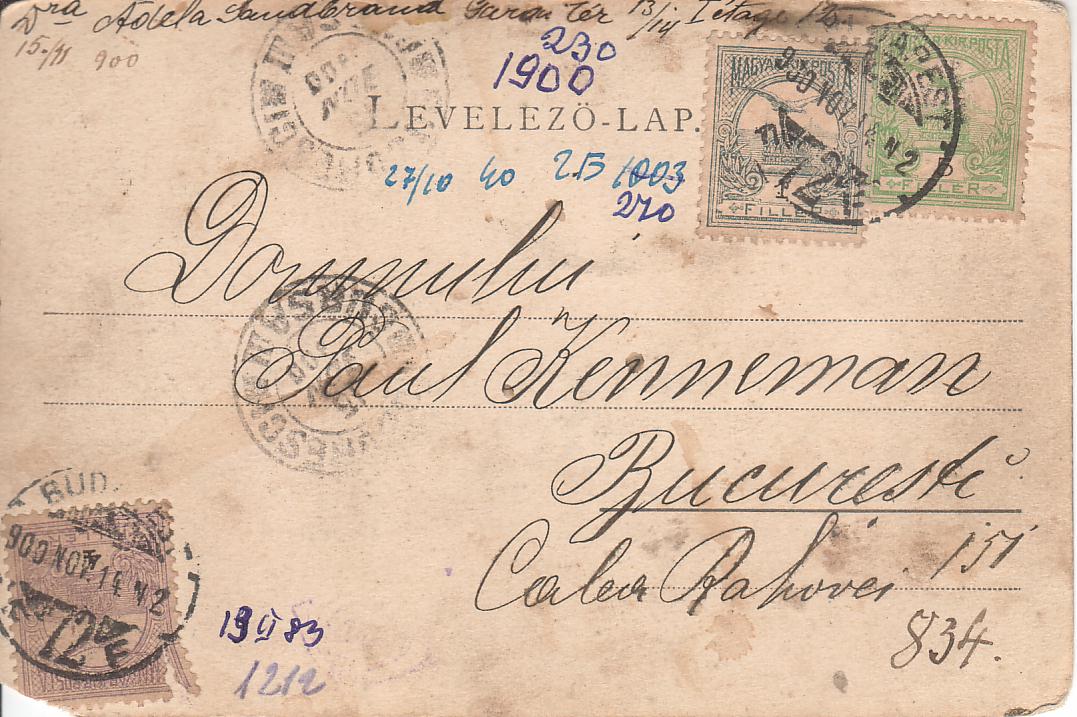 Dra Adela Sandbrand Garai Tér 13/14 I étage 12
15./11 900
230
1900
LEVELEZŐ-LAP.
27/10 40 2B 1003
270
MAGYAR KIR. POSTA
1
FILLER
KIR. POSTA
FILLER
BUDAPEST
900 NOV. 14 N 2
Domnului
Paul Kenneman
Bucuresti
Calea Rahovei 151
834.
BUD
900 NOV. 14 N 2
19 VI 83
1212